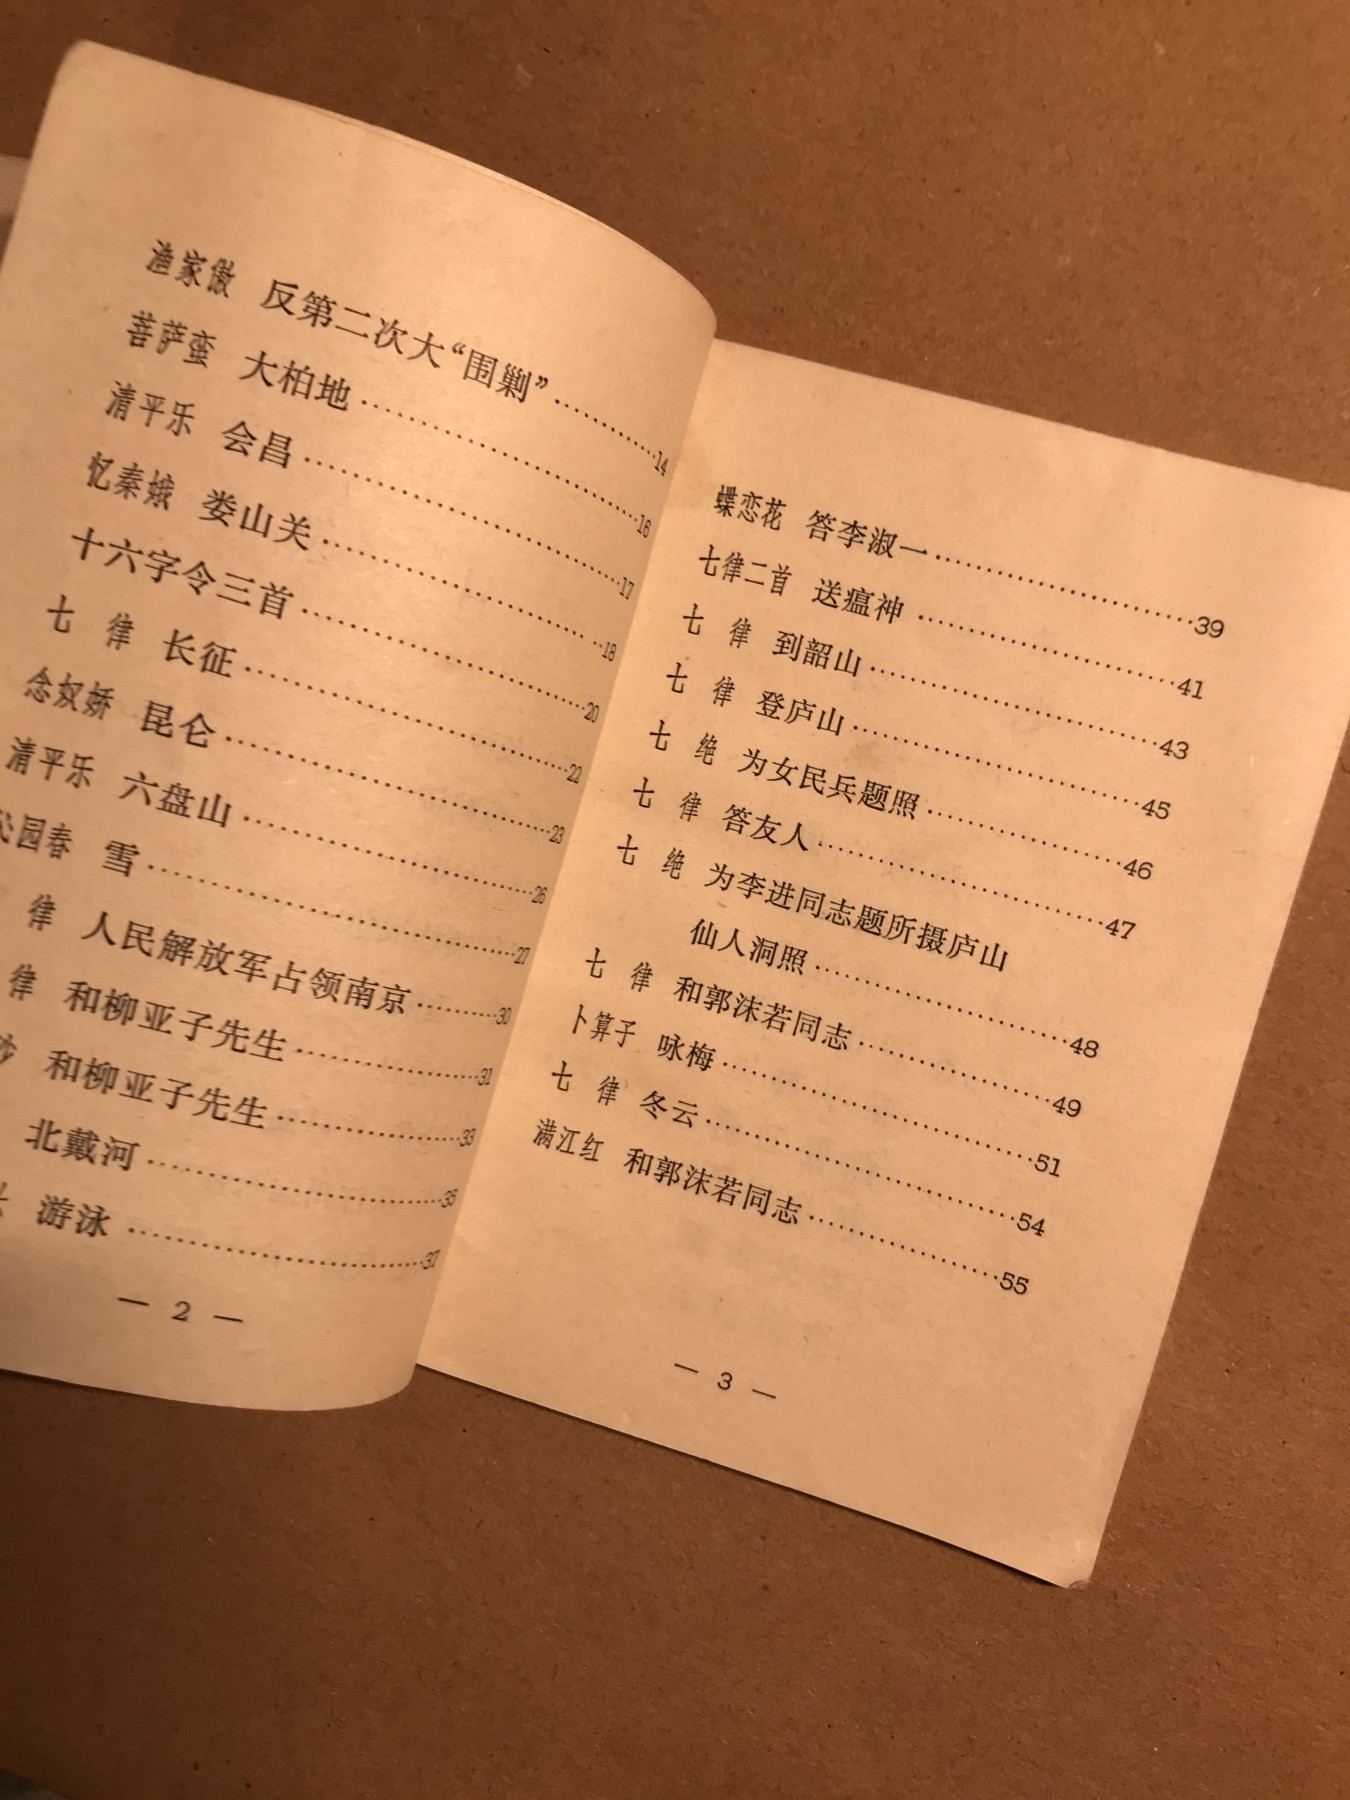 渔家傲 反第二次大“围剿”……………14
菩萨蛮 大柏地……………16
清平乐 会昌……………17
忆秦娥 娄山关……………18
十六字令三首……………20
七 律 长征……………22
念奴娇 昆仑……………23
清平乐 六盘山……………26
沁园春 雪……………27
律 人民解放军占领南京……………30
律 和柳亚子先生……………31
沙 和柳亚子先生……………33
北戴河……………35
游泳……………37
— 2 —
蝶恋花 答李淑一……………39
七律二首 送瘟神……………41
七 律 到韶山……………43
七 律 登庐山……………45
七 绝 为女民兵题照……………46
七 律 答友人……………47
七 绝 为李进同志题所摄庐山
仙人洞照……………48
七 律 和郭沫若同志……………49
卜算子 咏梅……………51
七 律 冬云……………54
满江红 和郭沫若同志……………55
— 3 —